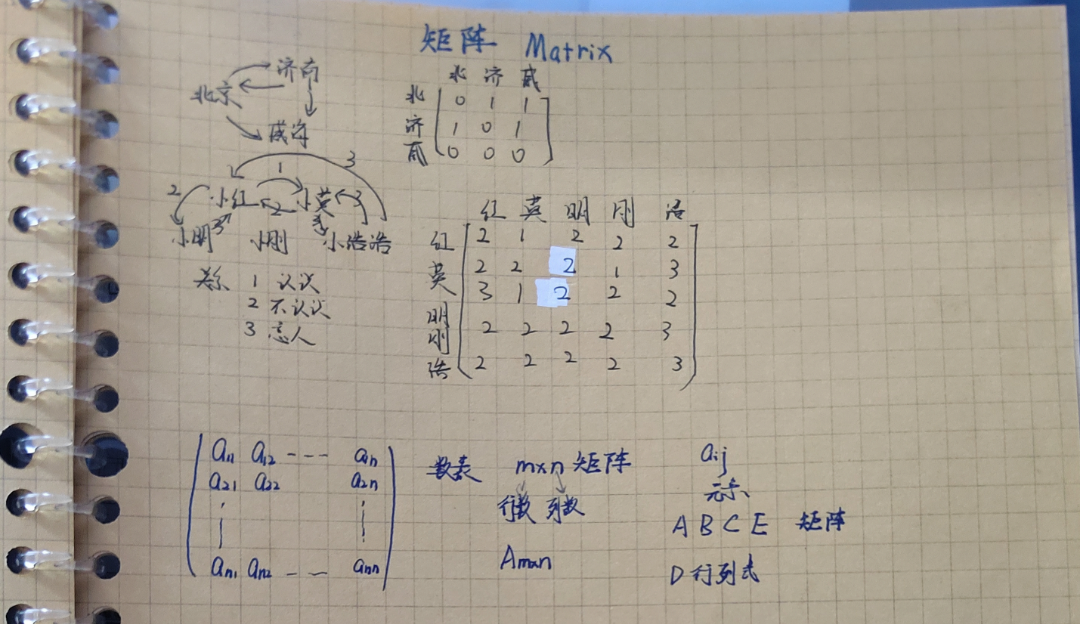 矩阵 Matrix
济南
北京
咸宁
北 济 咸
北 0 1 1
济 1 0 1
咸 0 0 0
1 3
2 小红 2 小英
小明 3 小刚 小浩浩
关系 1 认识
2 不认识
3 恋人
红 英 明 刚 浩
红 2 1 2 2 2
英 2 2 2 1 3
明 3 1 2 2 2
刚 2 2 2 2 3
浩 2 2 2 2 3
a11 a12 --- a1n
a21 a22 a2n
an1 an2 -- ann
数表 m×n 矩阵
行数 列数
Am×n
aij
元素
A B C E 矩阵
D 行列式